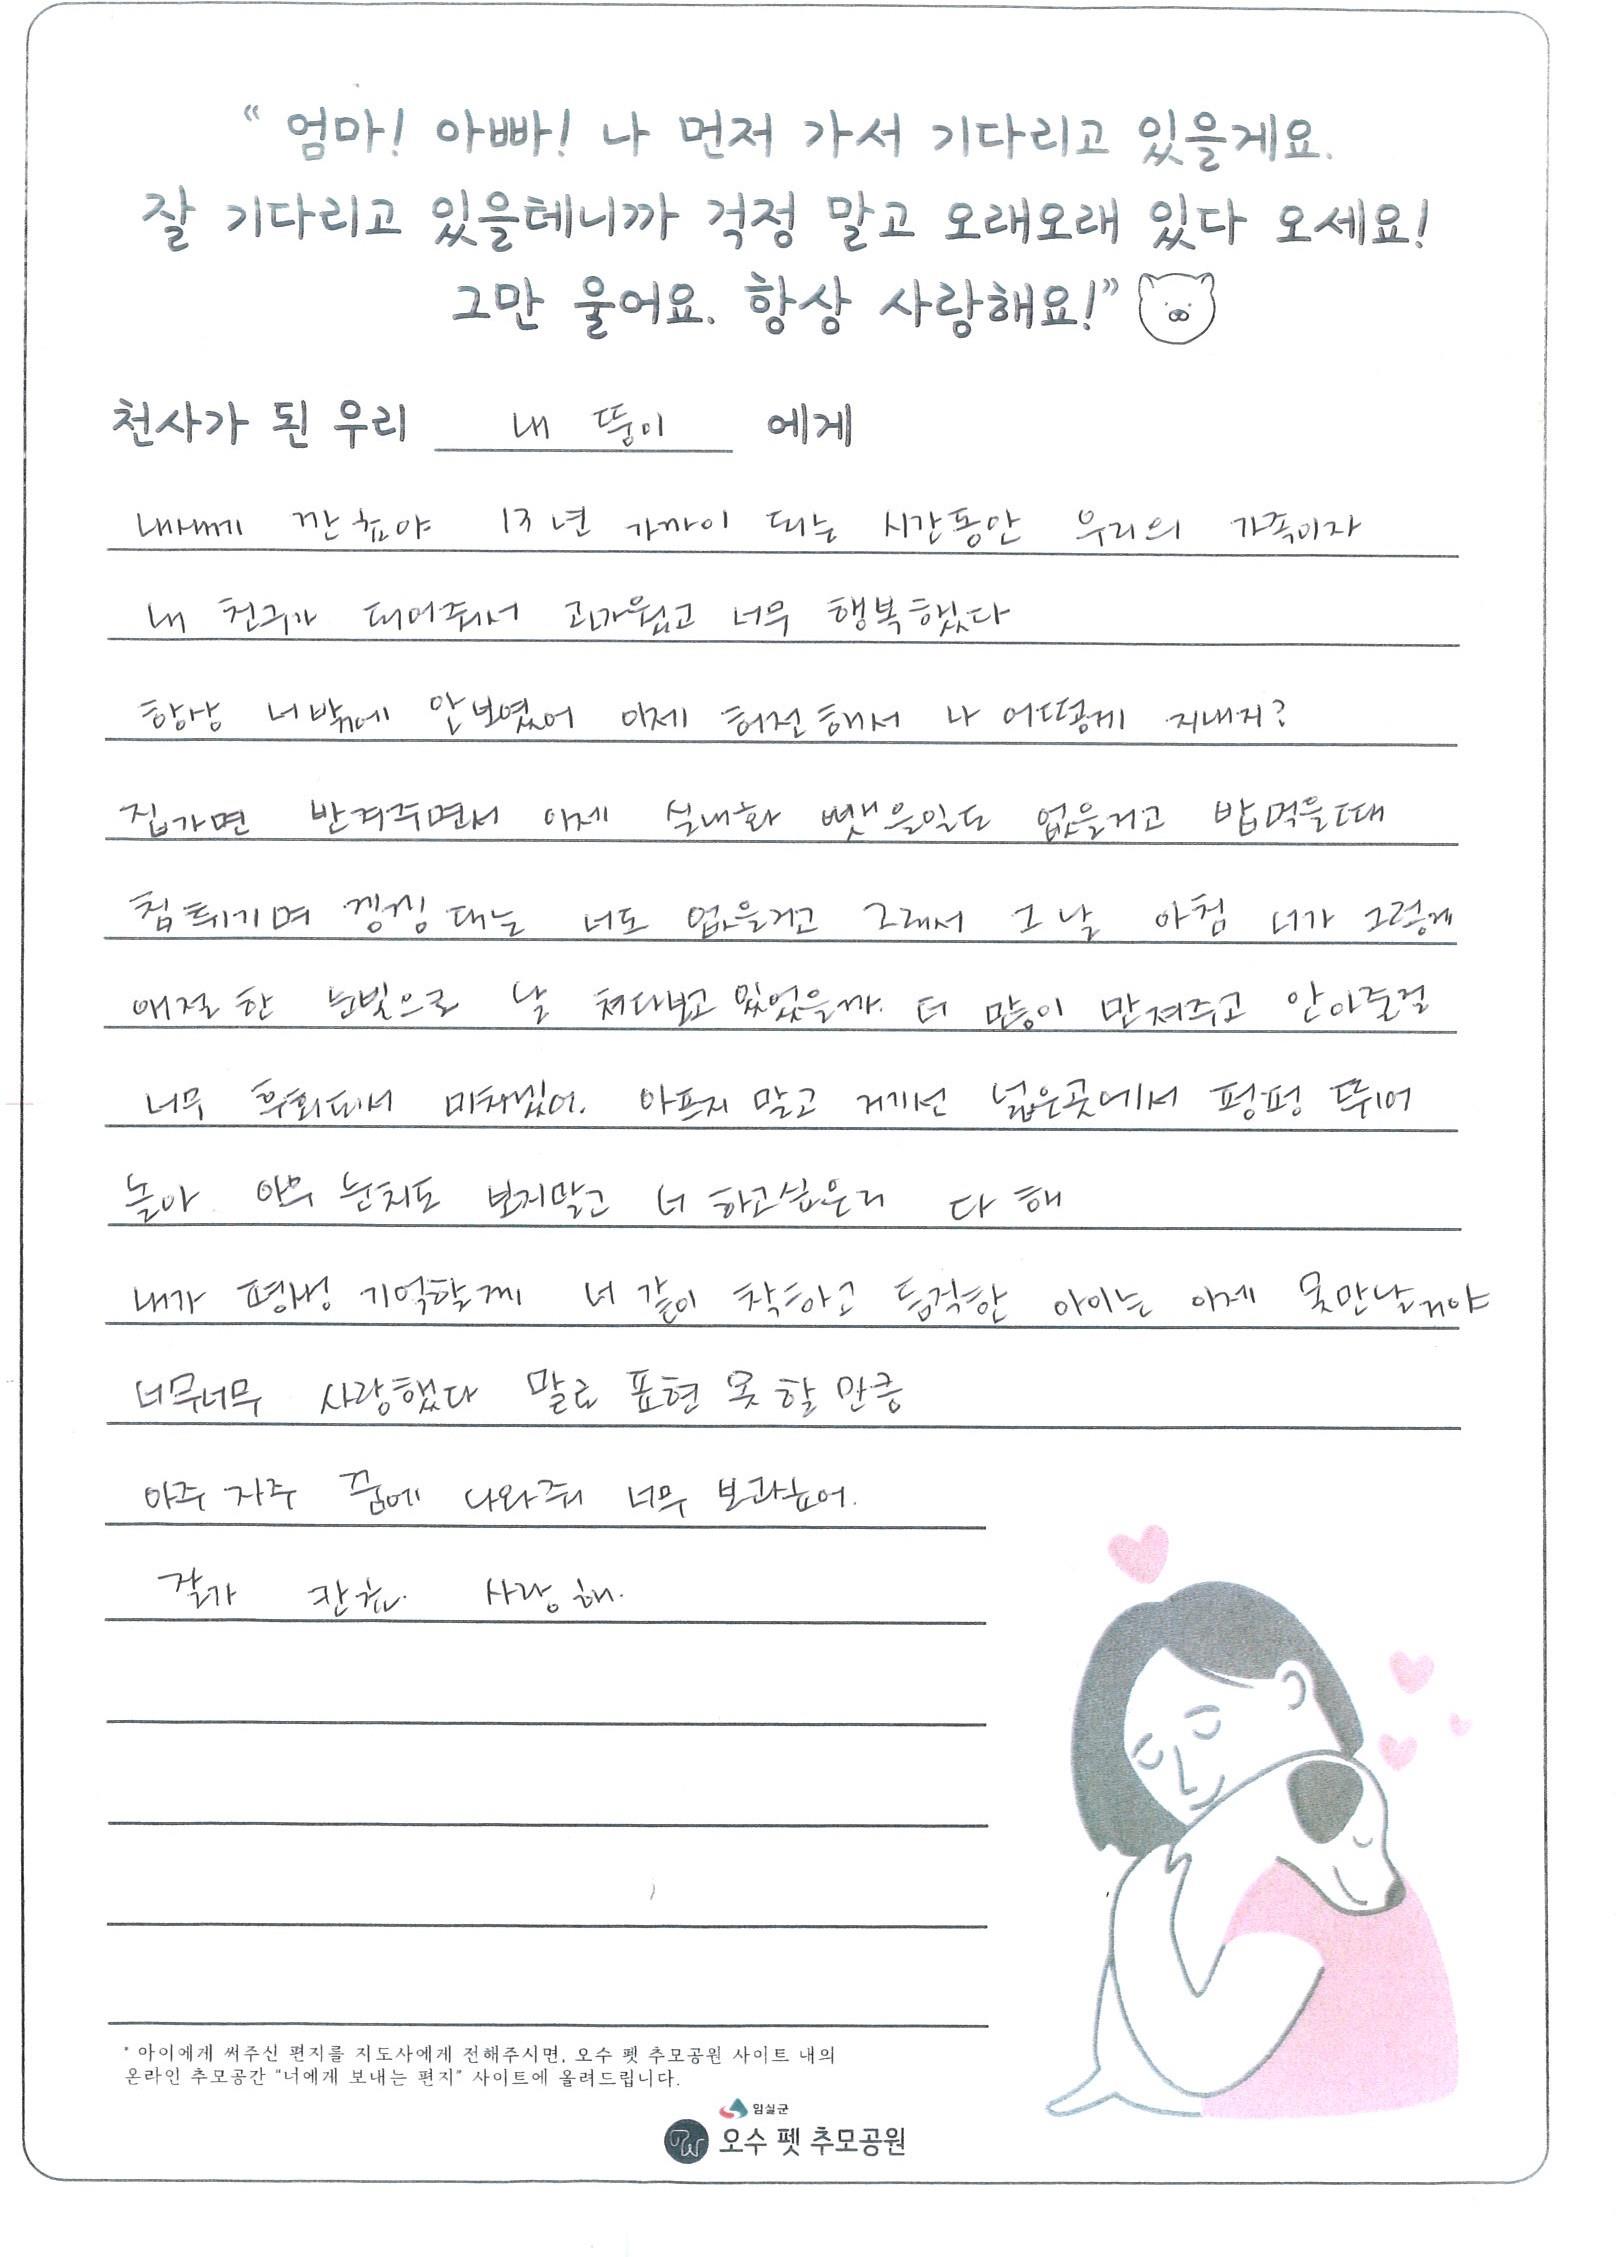 “ 엄마! 아빠! 나 먼저 가서 기다리고 있을게요.
잘 기다리고 있을테니까 걱정 말고 오래오래 있다 오세요!
그만 울어요. 항상 사랑해요!”
천사가 된 우리 내 뚱이 에게
내새께 깐쵸야 13년 가까이 되는 시간동안 우리의 가족이자
내 친구가 되어줘서 고마웠고 너무 행복했다
항상 너밖에 안보였어 이제 허전해서 나 어떻게 지내지?
집가면 반겨주면서 이제 실내화 뺏을일도 없을거고 밥먹을때
침튀기며 낑낑 대는 너도 없을거고 그래서 그 날 아침 너가 그렇게
애절한 눈빛으로 날 쳐다보고 있었을까. 더 많이 만져주고 안아줄걸
너무 후회되서 미치겠어. 아프지 말고 거기선 넓은곳에서 펑펑 뛰어
놀아 아무 눈치도 보지말고 너 하고싶은거 다 해
내가 평생 기억할게 너 같이 착하고 듬직한 아이는 이제 못만날거야
너무너무 사랑했다 말로 표현 못 할 만큼
아주 자주 꿈에 나와줘 너무 보고싶어.
잘가 깐쵸. 사랑해.
* 아이에게 써주신 편지를 지도사에게 전해주시면, 오수 펫 추모공원 사이트 내의
온라인 추모공간 “너에게 보내는 편지” 사이트에 올려드립니다.
임실군
오수 펫 추모공원